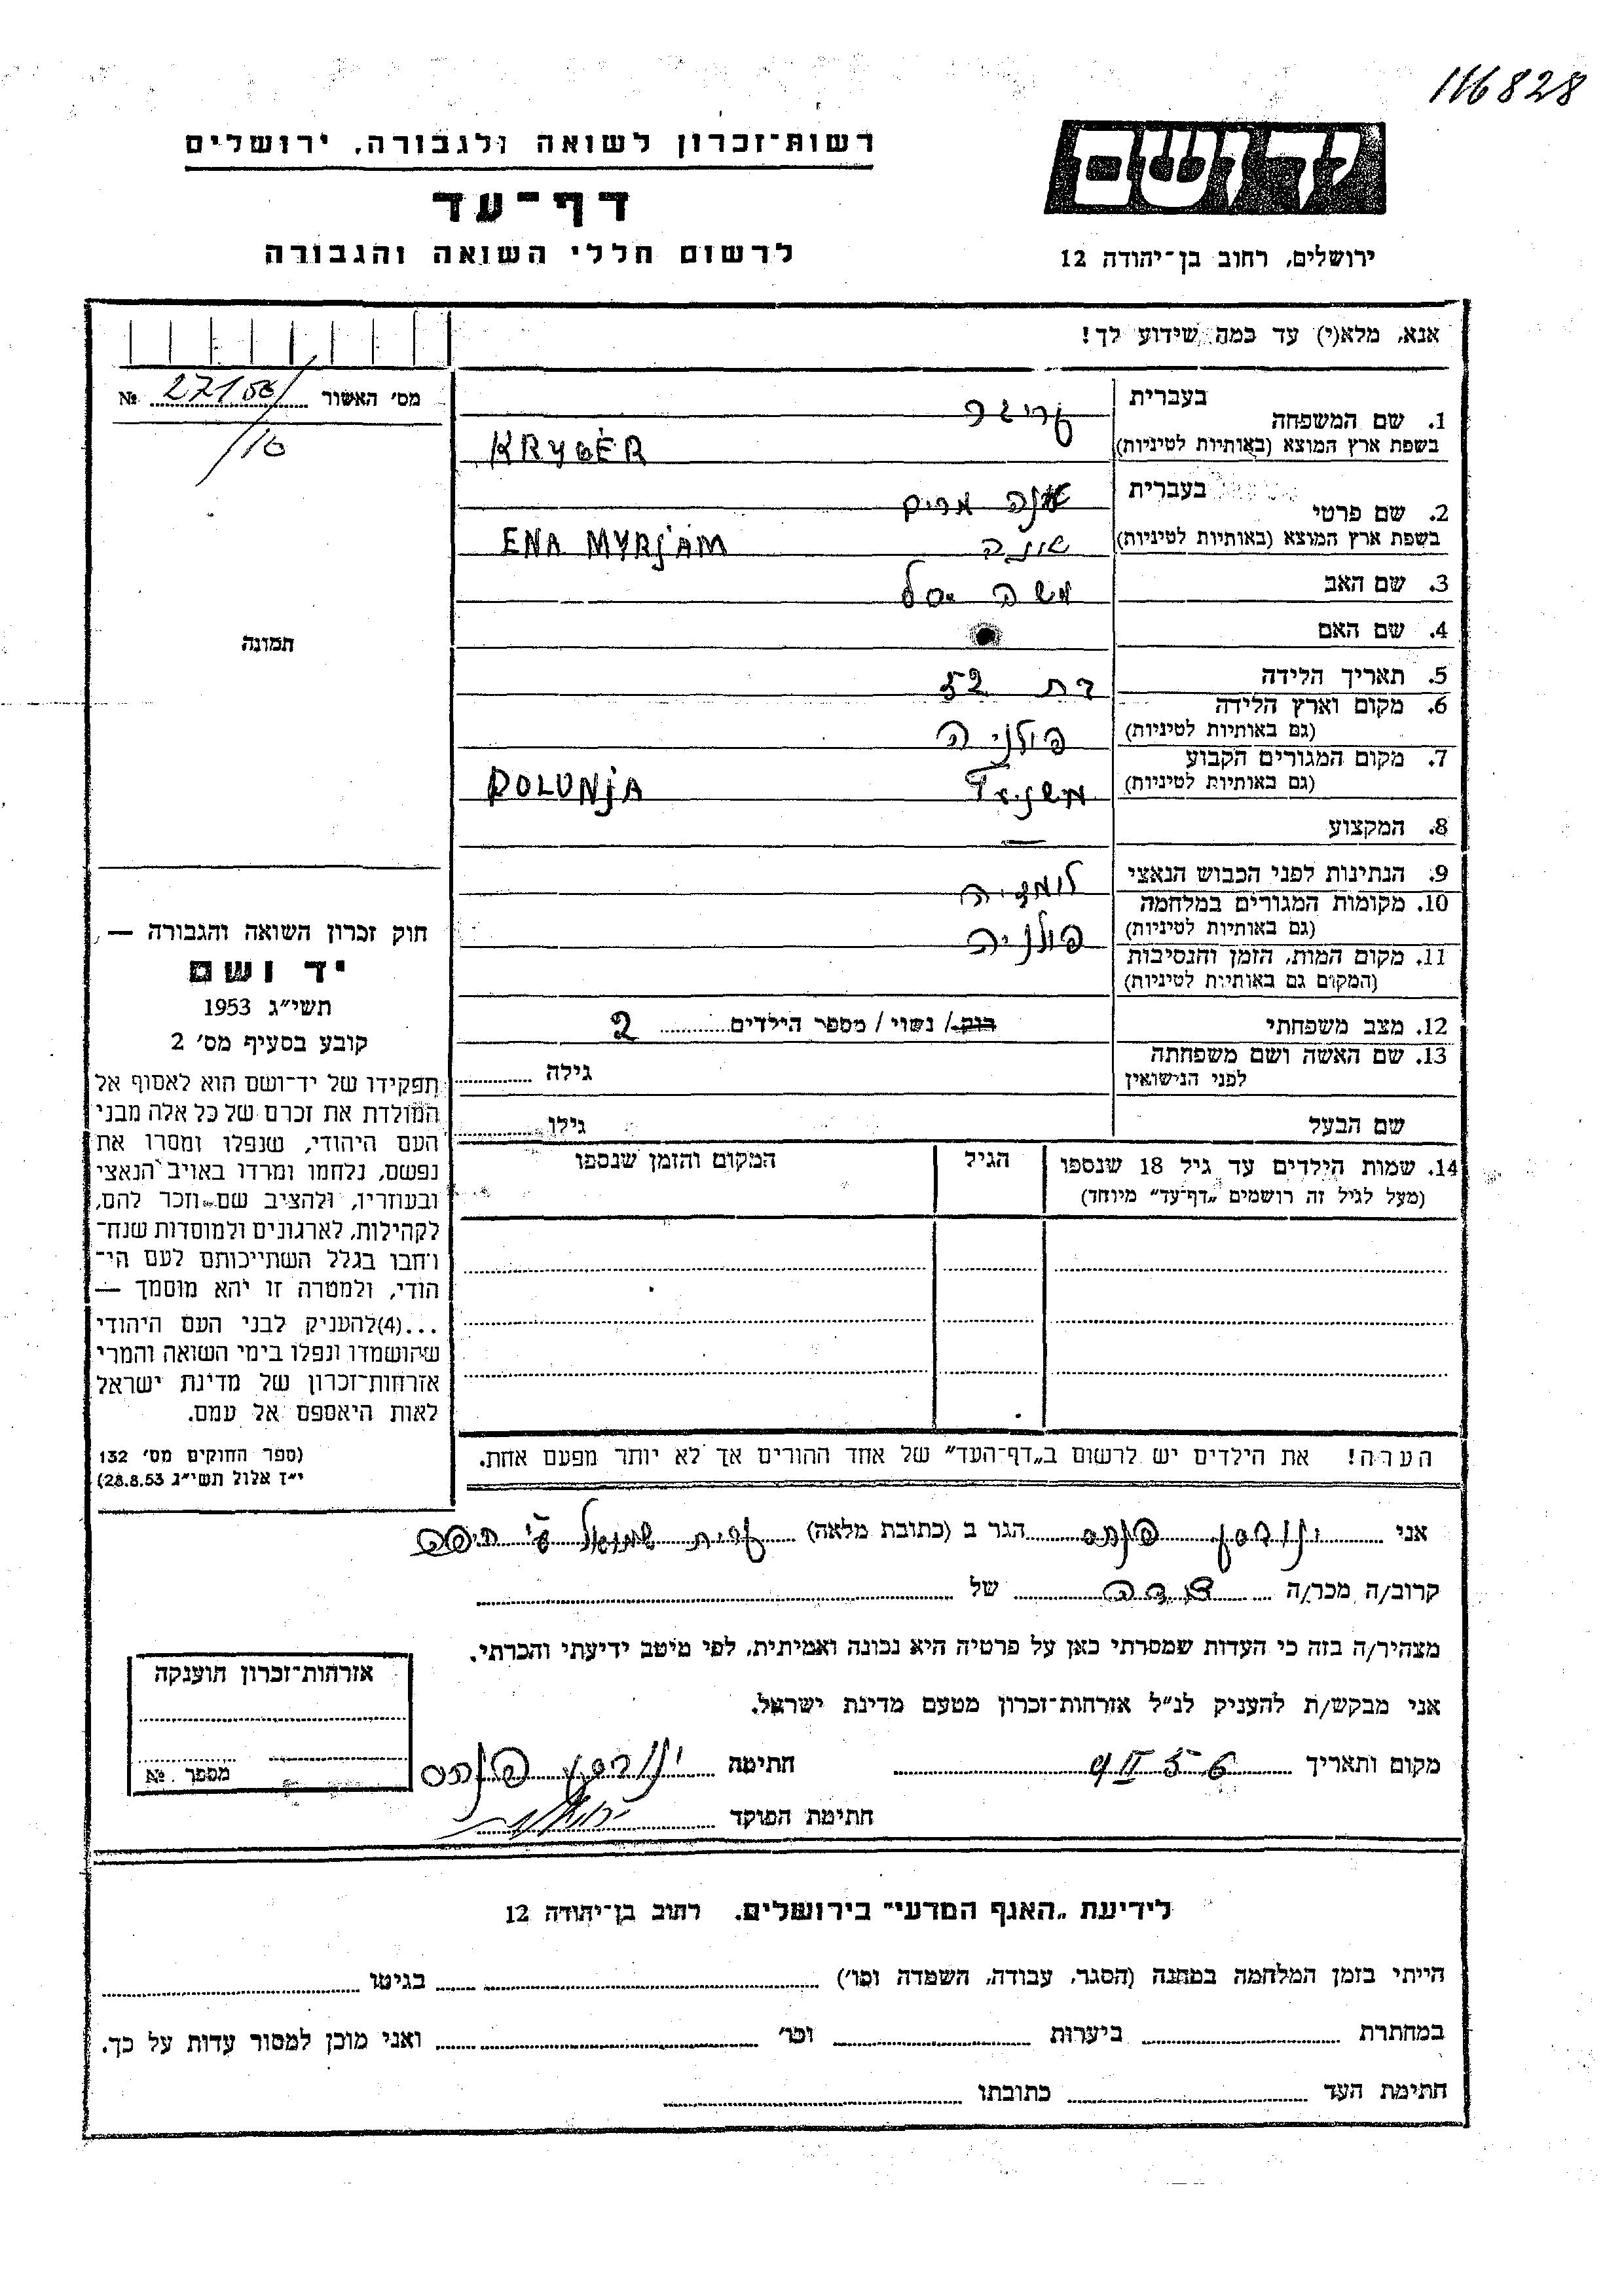 116828
רשות־זכרון לשואה ולגבורה, ירושלים
דף־עד
לרשום חללי השואה והגבורה
יד ושם
ירושלים, רחוב בן־יהודה 12
אנא, מלא(י) עד כמה שידוע לך!
מס׳ האשור № 27156/
/16
תמונה
1. שם המשפחה בעברית
בשפת ארץ המוצא (באותיות לטיניות) KRYGER
2. שם פרטי בעברית מרים
בשפת ארץ המוצא (באותיות לטיניות) ENA MYRjAM
3. שם האב משה
4. שם האם
5. תאריך הלידה בת 52
6. מקום וארץ הלידה
(גם באותיות לטיניות) פולניה
7. מקום המגורים הקבוע
(גם באותיות לטיניות) POLONjA
8. המקצוע —
9. הנתינות לפני הכבוש הנאצי
10. מקומות המגורים במלחמה
(גם באותיות לטיניות) פולניה
11. מקום המות, הזמן והנסיבות
(המקום גם באותיות לטיניות)
12. מצב משפחתי רוק / נשוי / מספר הילדים 2
13. שם האשה ושם משפחתה
לפני הנישואין גילה
שם הבעל גילו
14. שמות הילדים עד גיל 18 שנספו הגיל המקום והזמן שנספו
(מעל לגיל זה רושמים „דף־עד״ מיוחד)
הערה! את הילדים יש לרשום ב„דף־העד״ של אחד ההורים אך לא יותר מפעם אחת.
חוק זכרון השואה והגבורה —
יד ושם
תשי״ג 1953
קובע בסעיף מס׳ 2
תפקידו של יד־ושם הוא לאסוף אל
המולדת את זכרם של כל אלה מבני
העם היהודי, שנפלו ומסרו את
נפשם, נלחמו ומרדו באויב הנאצי
ובעוזריו, ולהציב שם וזכר להם,
לקהילות, לארגונים ולמוסדות שנח־
רחבו בגלל השתייכותם לעם הי־
הודי, ולמטרה זו יהא מוסמך —
...(4)להעניק לבני העם היהודי
שהושמדו ונפלו בימי השואה והמרי
אזרחות־זכרון של מדינת ישראל
לאות היאספם אל עמם.
(ספר החוקים מס׳ 132
י״ז אלול תשי״ג 28.8.53)
אני פנחס הגר ב (כתובת מלאה) קרית שמואל ע״י חיפה
קרוב/ה מכר/ה של
מצהיר/ה בזה כי העדות שמסרתי כאן על פרטיה היא נכונה ואמיתית, לפי מיטב ידיעתי והכרתי.
אני מבקש/ת להעניק לנ״ל אזרחות־זכרון מטעם מדינת ישראל.
מקום ותאריך 9 II 56 חתימה פנחס
חתימת הפוקד
אזרחות־זכרון הוענקה
מספר №
לידיעת „האגף המדעי״ בירושלים, רחוב בן־יהודה 12
הייתי בזמן המלחמה במחנה (הסגר, עבודה, השמדה וכו׳) בגיטו
במחתרת ביערות וכו׳ ואני מוכן למסור עדות על כך.
חתימת העד כתובתו